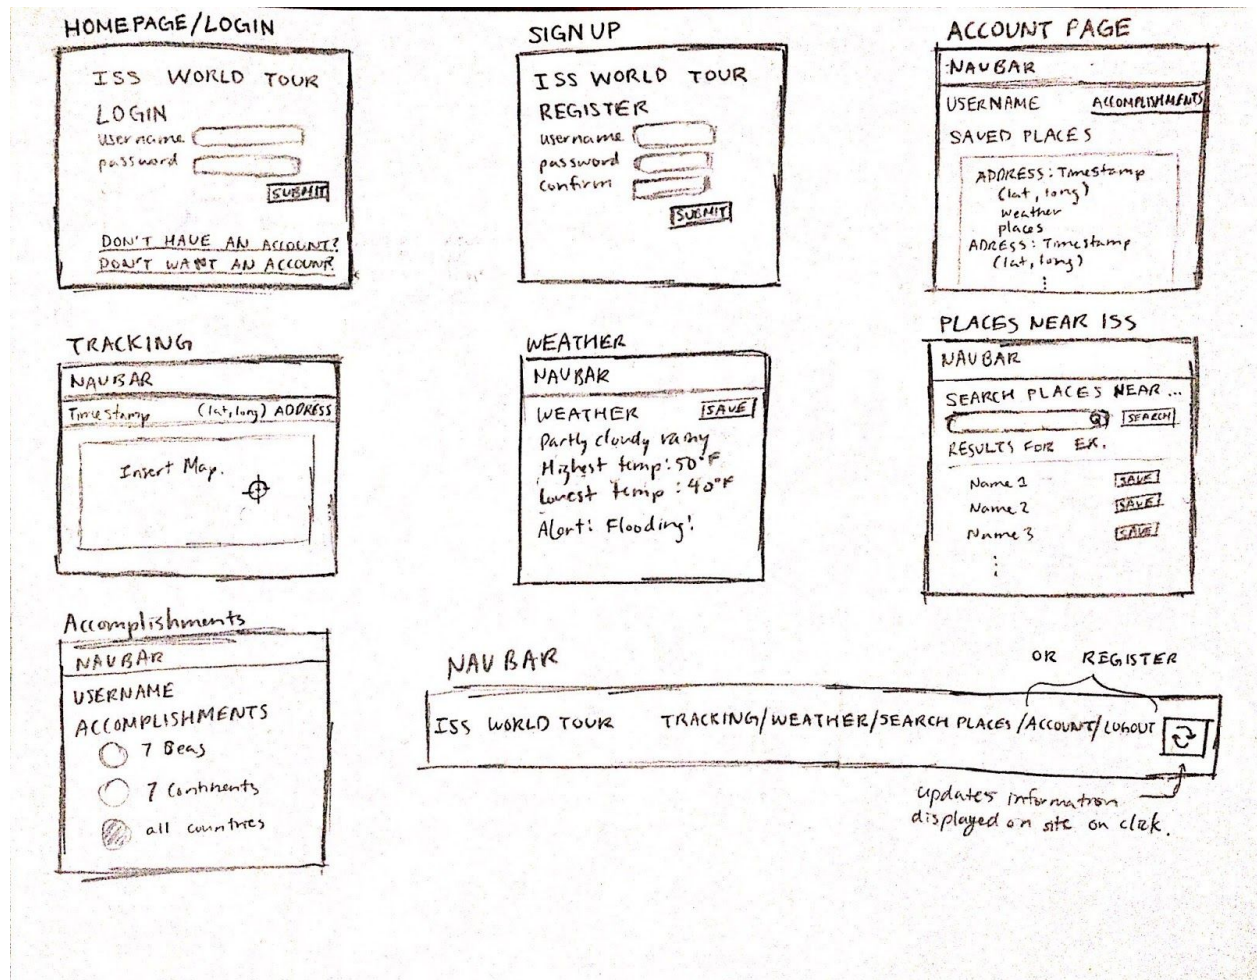 HOMEPAGE/LOGIN
ISS WORLD TOUR
LOGIN
username
password
SUBMIT
DON'T HAVE AN ACCOUNT?
DON'T WANT AN ACCOUNT?
SIGN UP
ISS WORLD TOUR
REGISTER
username
password
confirm
SUBMIT
ACCOUNT PAGE
NAVBAR
USERNAME ACCOMPLISHMENTS
SAVED PLACES
ADDRESS: Timestamp
(lat, long)
weather
places
ADRESS: Timestamp
(lat, long)
TRACKING
NAVBAR
Timestamp (lat, long) ADDRESS
Insert Map.
WEATHER
NAVBAR
WEATHER SAVE
Partly cloudy rainy
Highest temp: 50°F
Lowest temp: 40°F
Alert: Flooding!
PLACES NEAR ISS
NAVBAR
SEARCH PLACES NEAR...
SEARCH
RESULTS FOR EX.
Name 1 SAVE
Name 2 SAVE
Name 3 SAVE
Accomplishments
NAVBAR
USERNAME
ACCOMPLISHMENTS
7 Seas
7 Continents
all countries
NAV BAR
OR REGISTER
ISS WORLD TOUR TRACKING/WEATHER/SEARCH PLACES/ACCOUNT/LOGOUT
updates information
displayed on site on click.